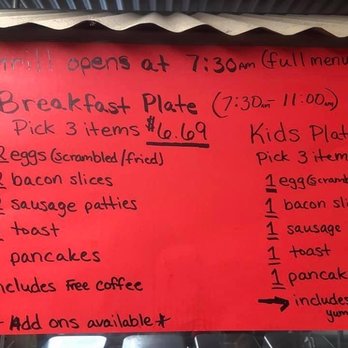 Grill opens at 7:30AM (full menu
Breakfast Plate (7:30am - 11:00am)
Pick 3 items $6.69
2 eggs (scrambled/fried)
2 bacon slices
2 sausage patties
toast
pancakes
includes Free coffee
Add ons available *
Kids Plat
Pick 3 item
1 egg (scram
1 bacon sli
1 sausage
1 toast
1 pancak
→ includes
yum